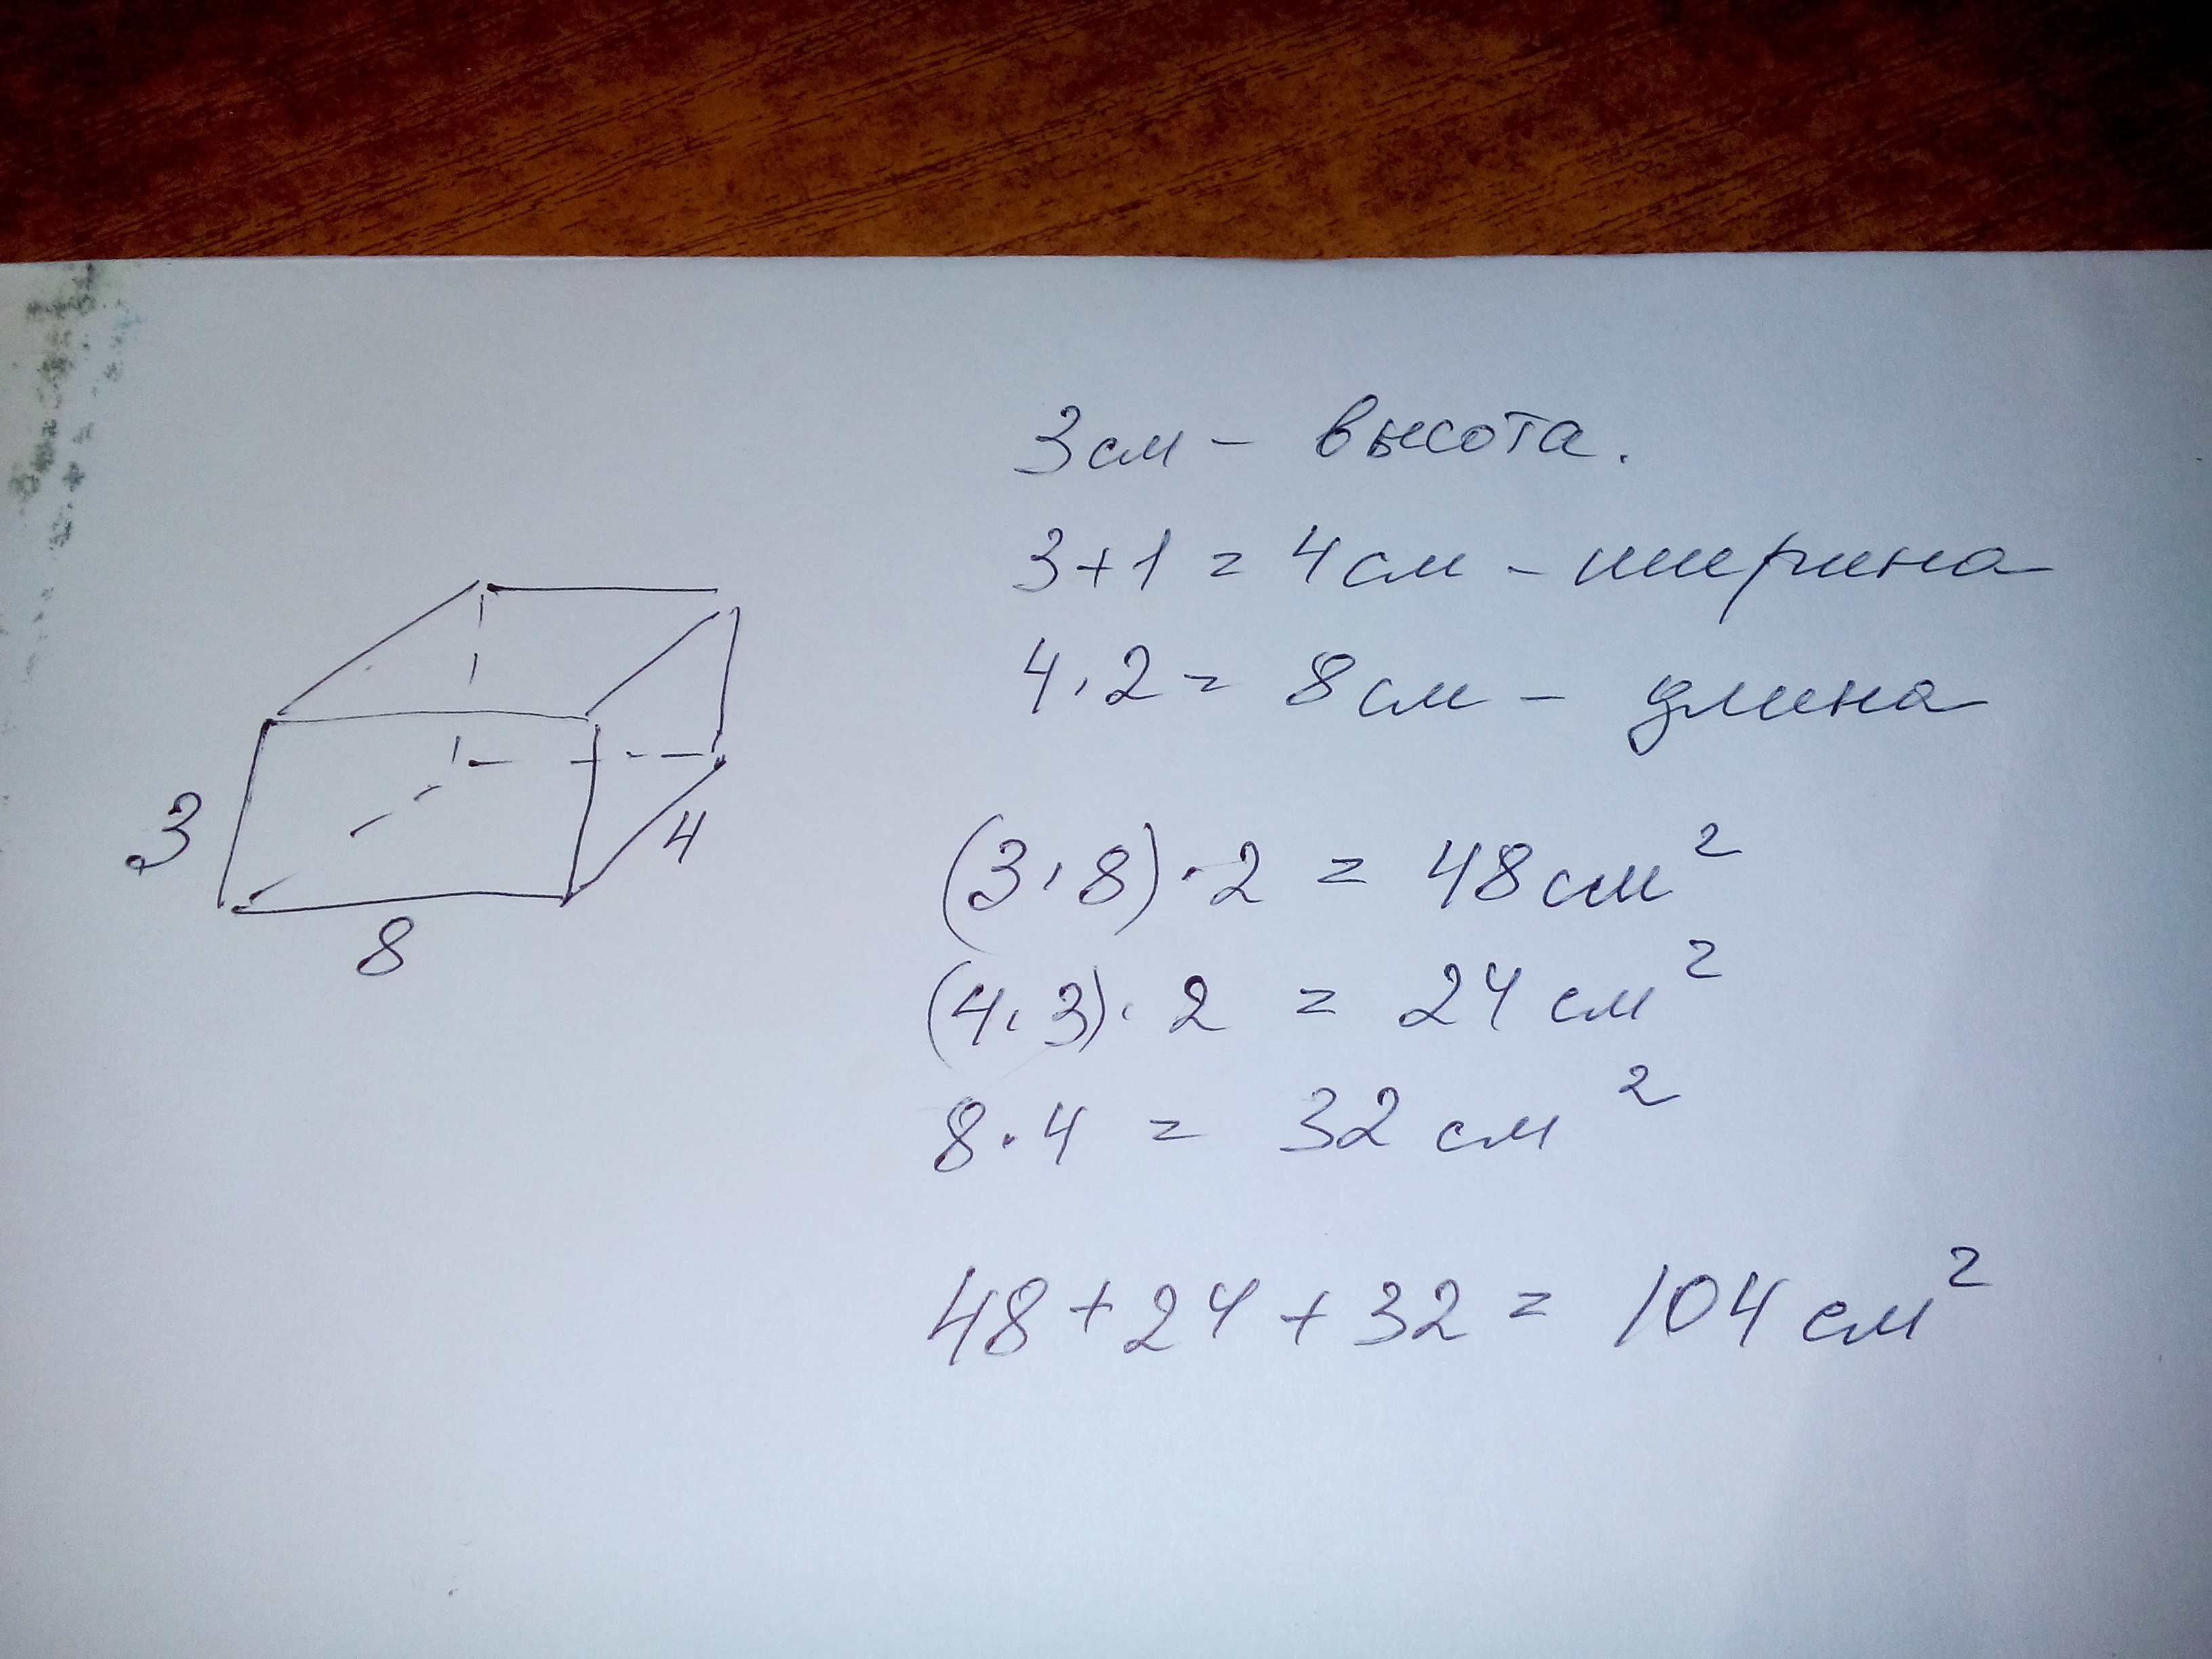 3 см - высота.
3+1 = 4 см - ширина
4·2 = 8 см - длина
3
4
8
(3·8)·2 = 48 см²
(4·3)·2 = 24 см²
8·4 = 32 см²
48+24+32 = 104 см²